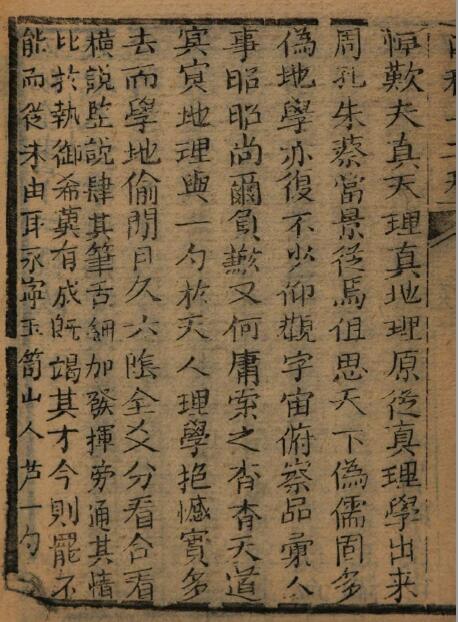 悼歎夫真天理真地理原從真理學出来
周孔朱蔡當景從焉但思天下偽儒固多
偽地學亦復不少仰觀宇宙俯察品彙人
事昭昭尚爾負歉又何庸索之杳杳天道
㝠㝠地理與一勺於天人理學抱憾實多
去而學地偷閒日久六陰全爻分看合看
橫說竪說肆其筆舌細加發揮旁通其情
比於執御希冀有成旣竭其才今則罷不
能而從末由耳永寧玉笥山人芦一勺